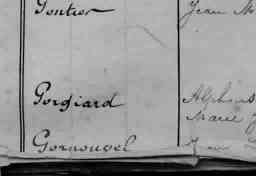 Pontier Jean M
Porgiard Alphons
Marie J
Gornougel Jean